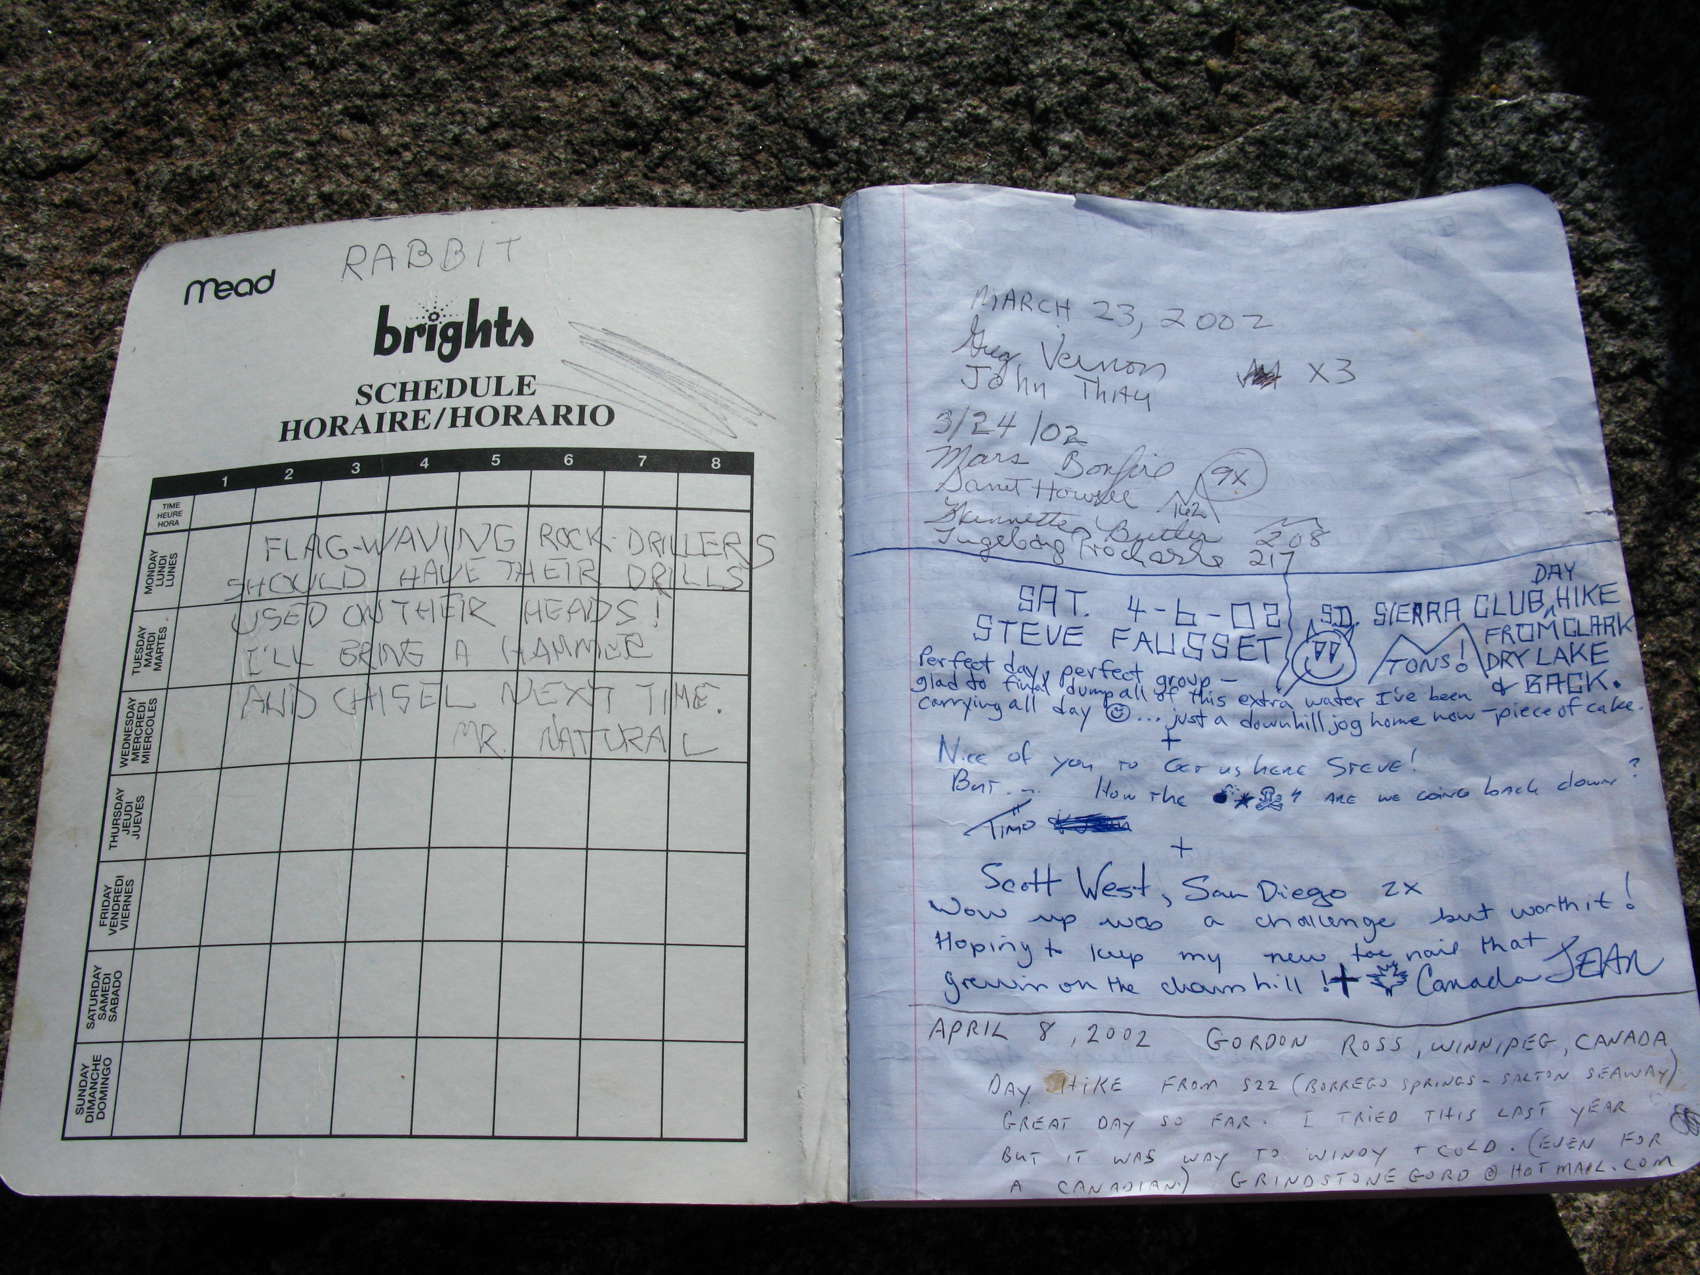 RABBIT
Mead
brights
SCHEDULE
HORAIRE/HORARIO
1 2 3 4 5 6 7 8
TIME
HEURE
HORA
MONDAY
LUNDI
LUNES
TUESDAY
MARDI
MARTES
WEDNESDAY
MERCREDI
MIERCOLES
THURSDAY
JEUDI
JUEVES
FRIDAY
VENDREDI
VIERNES
SATURDAY
SAMEDI
SABADO
SUNDAY
DIMANCHE
DOMINGO
FLAG-WAVING ROCK-DRILLERS
SHOULD HAVE THEIR DRILLS
USED ON THEIR HEADS!
I'LL BRING A HAMMER
AND CHISEL NEXT TIME.
MR. NATURAL
MARCH 23, 2002
Greg Vernon
John Thay X3
3/24/02
Mars Bonfire 9X
Howell 162
Butler 208
Ingeborg Prochazka 217
SAT. 4-6-02
STEVE FAUSSET
S.D. SIERRA CLUB DAY HIKE
FROM CLARK
DRY LAKE
& BACK.
TONS!
Perfect day, perfect group –
glad to final dump all of this extra water I've been
carrying all day ... just a downhill jog home now – piece of cake.
+
Nice of you to get us here Steve!
But.... How the are we going back down?
TIMO
+
Scott West, San Diego 2x
Wow up was a challenge but worth it!
Hoping to keep my new toe nail that
grew in on the down hill! + Canada JEAN
APRIL 8, 2002 GORDON ROSS, WINNIPEG, CANADA
DAY HIKE FROM S22 (BORREGO SPRINGS - SALTON SEAWAY)
GREAT DAY SO FAR. I TRIED THIS LAST YEAR
BUT IT WAS WAY TO WINDY + COLD. (EVEN FOR
A CANADIAN) GRINDSTONEGORD@HOTMAIL.COM